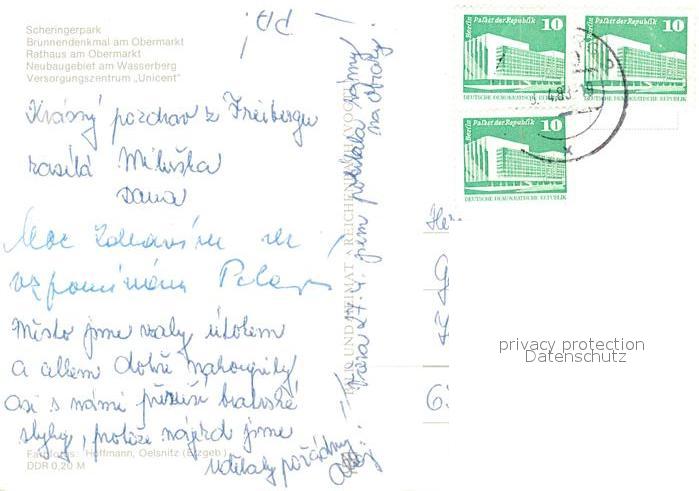 Scheringerpark
Brunnendenkmal am Obermarkt
Rathaus am Obermarkt
Neubaugebiet am Wasserberg
Versorgungszentrum „Unicent"
Krásný pozdrav z Freibergu
zasílá Miluška
Dana
Moc zdravím a
vzpomínám
Město jsme vzaly útokem
a celkem dobře nakoupily
asi s námi přeruší bratrské
styky, protože nájezd jsme
udělaly pořádný.
Ahoj!
Včera 27.4. jsem
na obrazy
BILD UND HEIMAT REICHENBACH (VOGTL)
Farbfotos: Hoffmann, Oelsnitz (Erzgeb.)
DDR 0,20 M
Berlin Palast der Republik 10
DEUTSCHE DEMOKRATISCHE REPUBLIK
Berlin Palast der Republik 10
DEUTSCHE DEMOKRATISCHE REPUBLIK
Berlin Palast der Republik 10
DEUTSCHE DEMOKRATISCHE REPUBLIK
privacy protection
Datenschutz